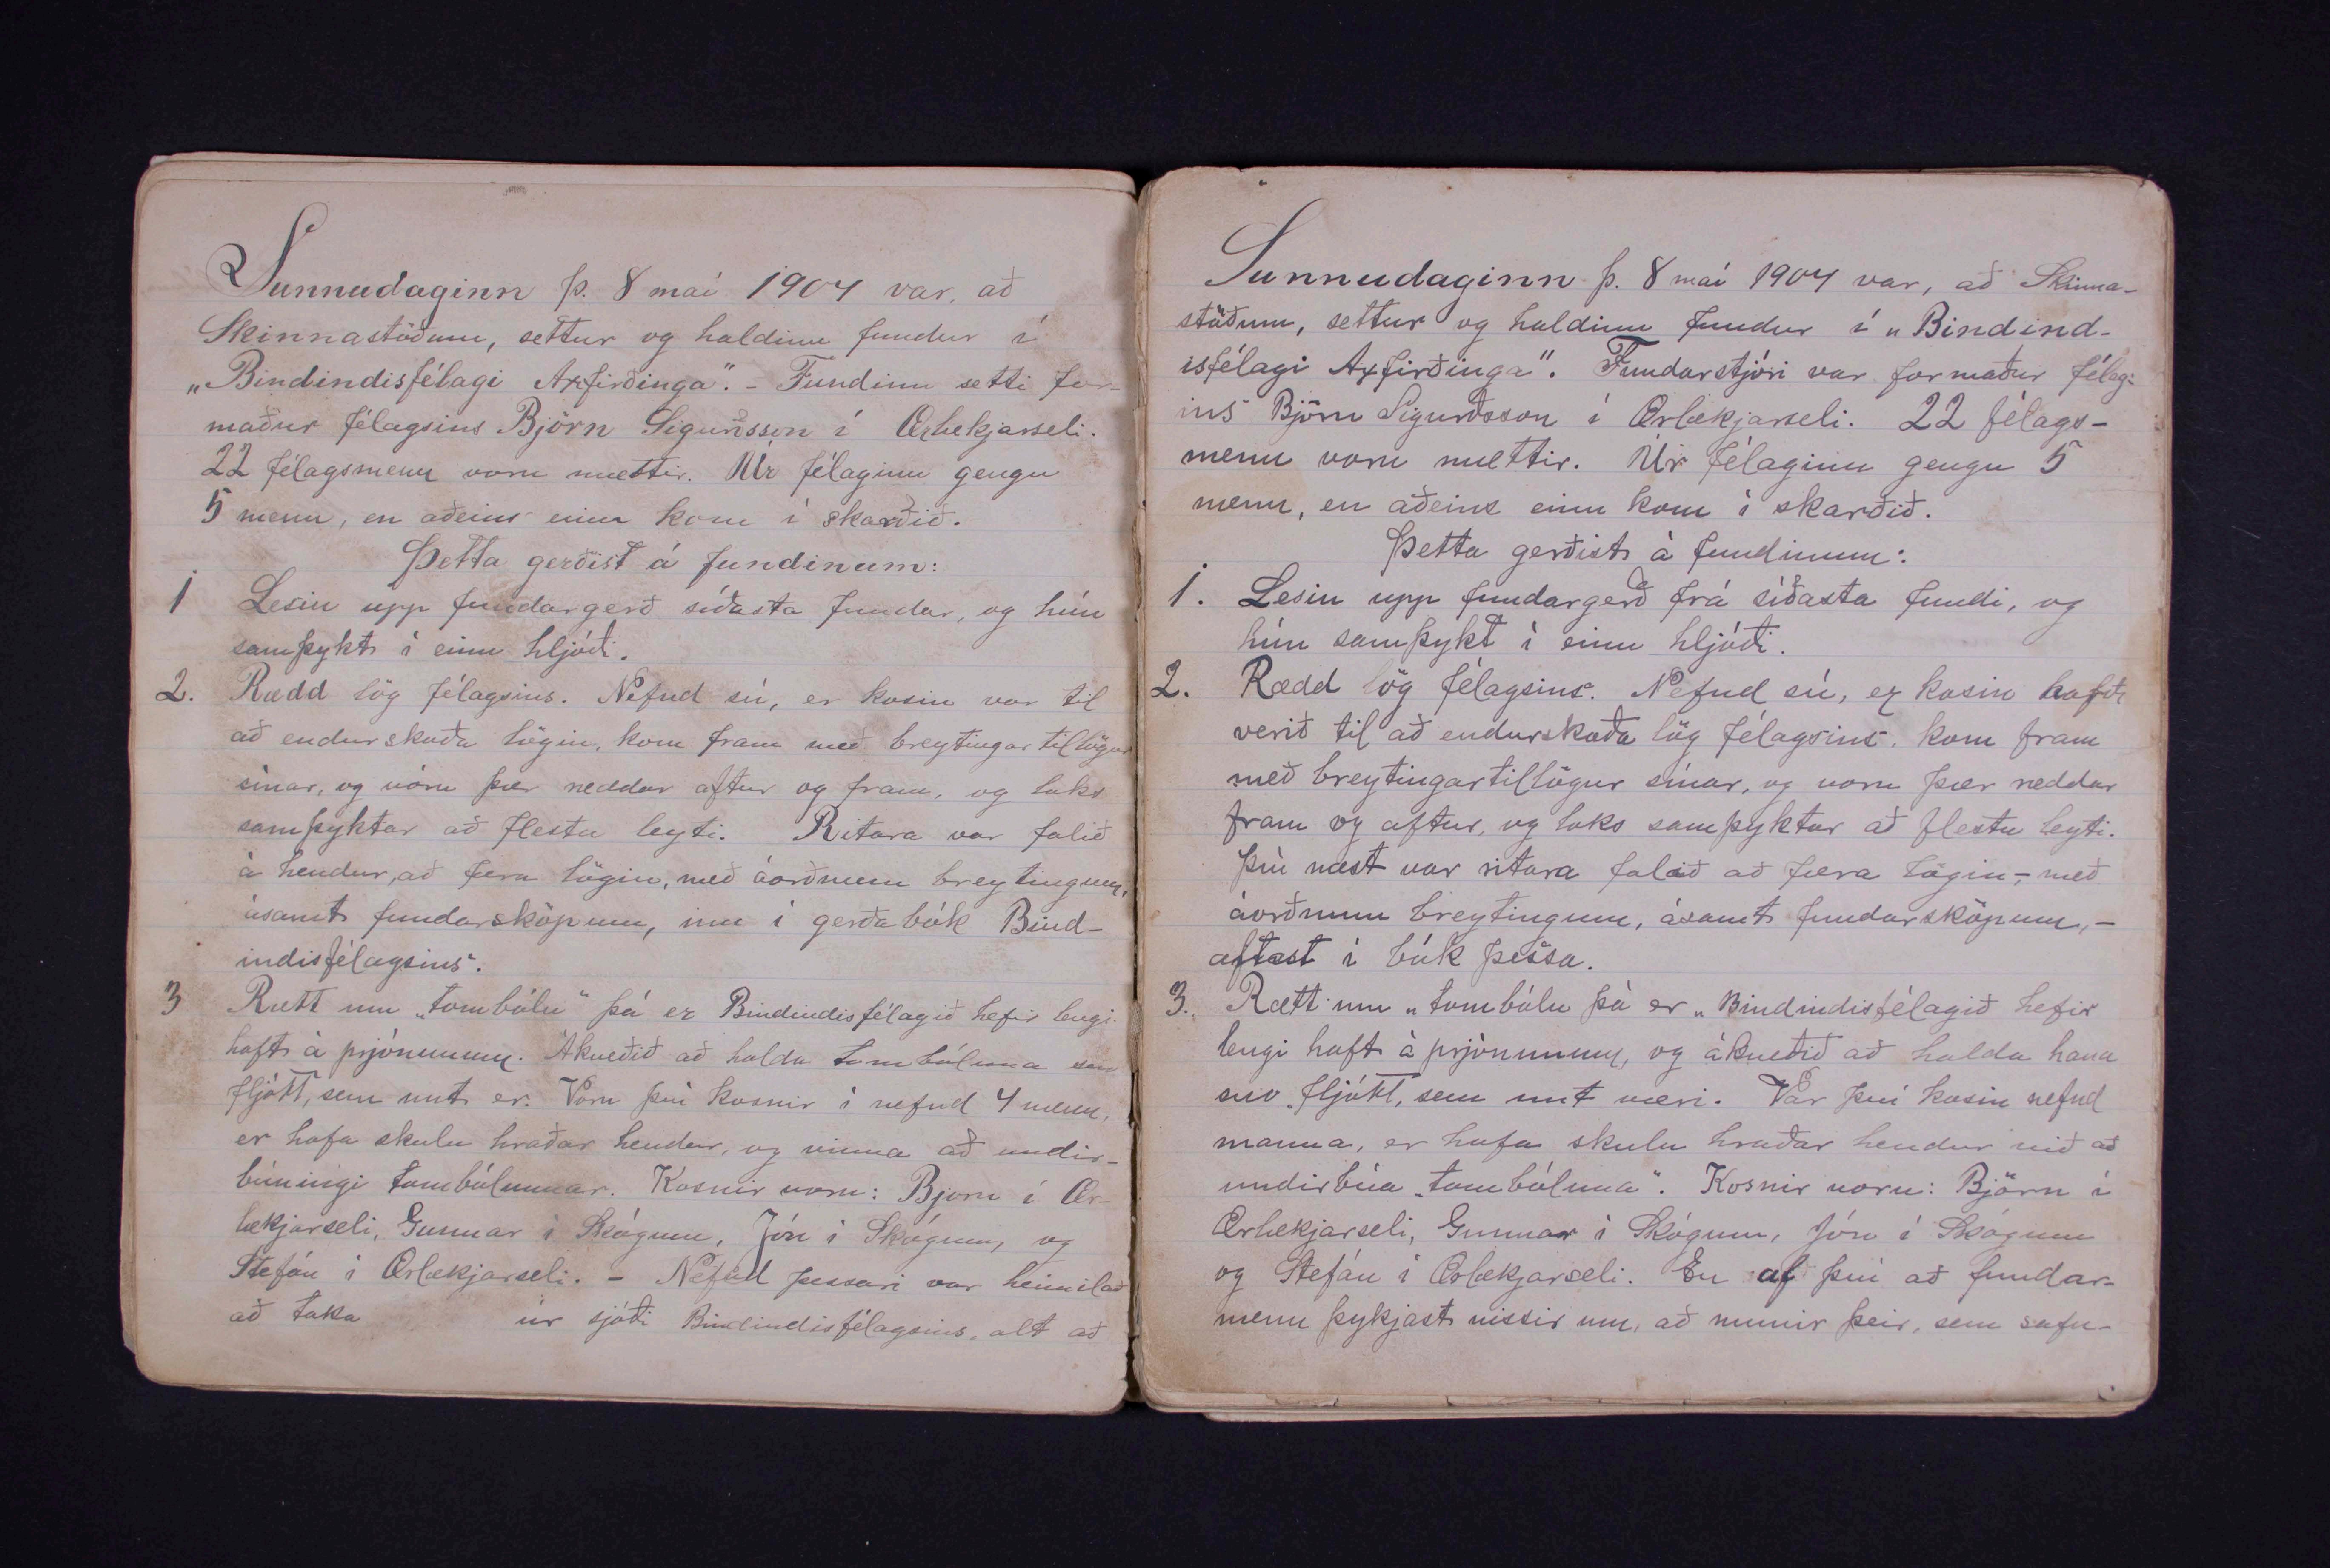 Sunnudaginn þ. 8 maí 1904 var, að
Skinnastöðum, settur og haldinn fundur í
„Bindindisfélagi Axfirðinga". - Fundinn setti for-
maður félagsins Björn Sigurðsson í Ærlækjarseli.
22 félagsmenn voru mættir. Úr félaginu gengu
5 menn, en aðeins einn kom í skarðið.
Þetta gerðist á fundinum:
1 Lesin upp fundargerð síðasta fundar, og hún
samþykt í einu hljóði.
2. Rædd lög félagsins. Nefnd sú, er kosin var til
að endurskoða lögin, kom fram með breytingartillögur
sínar, og vóru þær ræddar aftur og fram, og loks
samþyktar að flestu leyti. Ritara var falið
á hendur, að færa lögin, með áorðnum breytingum,
ásamt fundarsköpum, inn í gerðabók Bind-
indisfélagsins.
3 Rætt um „tombólu" þá er Bindindisfélagið hefir lengi
haft á prjónunum. Ákveðið að halda tombóluna svo
fljótt, sem unt er. Voru því kosnir í nefnd 4 menn,
er hafa skulu hraðar hendur, og vinna að undir-
búningi tombólunnar. Kosnir voru: Björn í Ær-
lækjarseli, Gunnar í Skógum, Jón í Skógum, og
Stefán í Ærlækjarseli. - Nefnd þessari var heimilað
að taka úr sjóði Bindindisfélagsins, alt að
Sunnudaginn þ. 8 maí 1904 var, að Skinna-
stöðum, settur og haldinn fundur í „Bindind-
isfélagi Axfirðinga". Fundarstjóri var formaður félags-
ins Björn Sigurðsson í Ærlækjarseli. 22 félags-
menn voru mættir. Úr félaginu gengu 5
menn, en aðeins einn kom í skarðið.
Þetta gerðist á fundinum:
1. Lesin upp fundargerð frá síðasta fundi, og
hún samþykt í einu hljóði.
2. Rædd lög félagsins. Nefnd sú, er kosin hafði
verið til að endurskoða lög félagsins, kom fram
með breytingartillögur sínar, og voru þær ræddar
fram og aftur, og loks samþyktar að flestu leyti.
Því næst var ritara falið að færa lögin, - með
áorðnum breytingum, ásamt fundarsköpum, -
aftast í bók þessa.
3. Rætt um „tombólu þá er „Bindindisfélagið hefir
lengi haft á prjónunum, og ákveðið að halda hana
svo fljótt, sem unt væri. Var því kosin nefnd
manna, er hafa skulu hraðar hendur við að
undirbúa „tombóluna". Kosnir voru: Björn í
Ærlækjarseli, Gunnar í Skógum, Jón í Skógum
og Stefán í Ærlækjarseli. En af því að fundar-
menn þykjast vissir um, að munir þeir, sem safn-